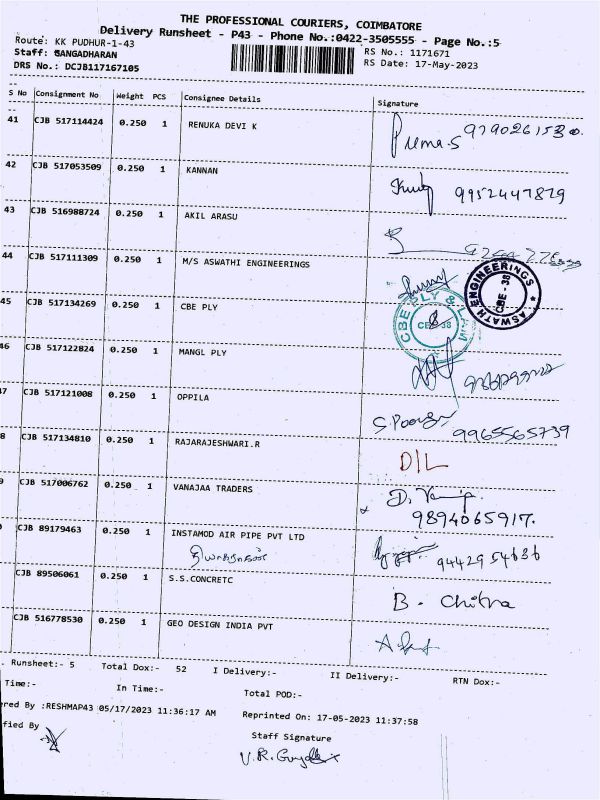 THE PROFESSIONAL COURIERS, COIMBATORE
Delivery Runsheet - P43 - Phone No.:0422-3505555 - Page No.:5
Route: KK PUDHUR-1-43 RS No.: 1171671
Staff: GANGADHARAN RS Date: 17-May-2023
DRS No.: DCJB117167105
S No Consignment No Weight PCS Consignee Details Signature
41 CJB 517114424 0.250 1 RENUKA DEVI K Prema.S
42 CJB 517053509 0.250 1 KANNAN 9952447829
43 CJB 516988724 0.250 1 AKIL ARASU
44 CJB 517111309 0.250 1 M/S ASWATHI ENGINEERINGS
ASWATH ENGINEERINGS CBE - 38
45 CJB 517134269 0.250 1 CBE PLY
CBE PLY & LAM CBE-38
46 CJB 517122824 0.250 1 MANGL PLY
7 CJB 517121008 0.250 1 OPPILA 9965565739
8 CJB 517134810 0.250 1 RAJARAJESHWARI.R D/L
9 CJB 517006762 0.250 1 VANAJAA TRADERS
9894065917.
CJB 89179463 0.250 1 INSTAMOD AIR PIPE PVT LTD 9442954636
CJB 89506061 0.250 1 S.S.CONCRETC B. Chitra
CJB 516778530 0.250 1 GEO DESIGN INDIA PVT
. Runsheet:- 5 Total Dox:- 52 I Delivery:- II Delivery:- RTN Dox:-
Time:- In Time:- Total POD:-
ered By :RESHMAP43 05/17/2023 11:36:17 AM Reprinted On: 17-05-2023 11:37:58
fied By Staff Signature